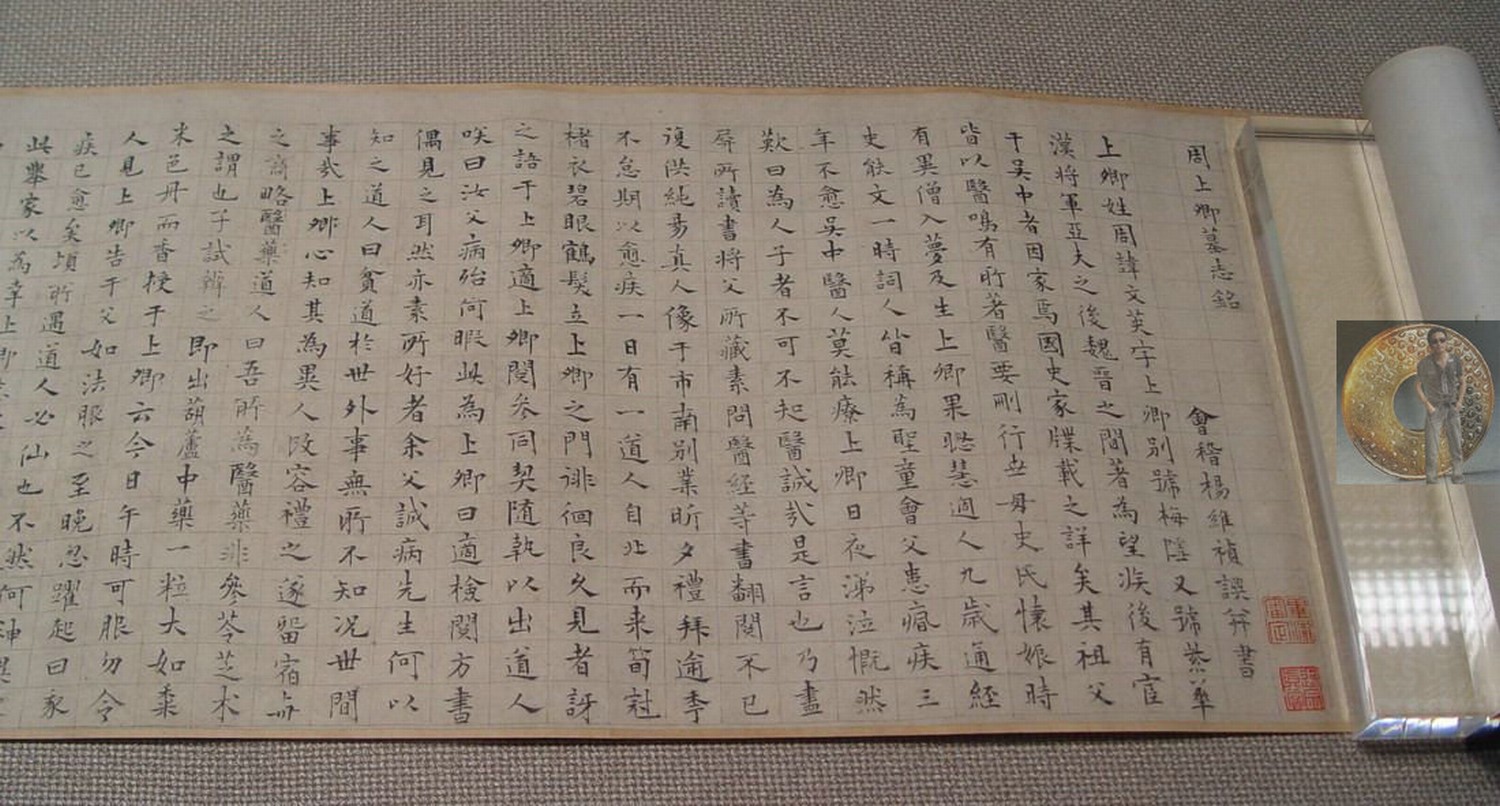 周上卿墓志銘
會稽楊維禎譔并書
上卿姓周諱文英字上卿別號梅隱又號紫華
漢將軍亞夫之後魏晉之間著為望族後有宦
于吳中者因家焉國史家牒載之詳矣其祖父
皆以醫鳴有所著醫要刪行世母史氏懷娠時
有異僧入夢及生上卿果聰慧過人九歲通經
史能文一時詞人皆稱為聖童會父患瘋疾三
年不愈吳中醫人莫能療上卿日夜涕泣慨然
歎曰為人子者不可不知醫誠哉是言也乃盡
屏所讀書將父所藏素問醫經等書翻閱不已
復洪純昜真人像于市南別業昕夕禮拜逾季
不怠期以愈疾一日有一道人自北而來筍冠
楮衣碧眼鶴髮立上卿之門徘徊良久見者訝
之語于上卿適上卿閱參同契随執以出道人
咲曰汝父病殆何暇此為上卿曰適檢閱方書
偶見之耳然亦素所好者余父誠病先生何以
知之道人曰貧道於世外事無所不知况世間
事哉上卿心知其為異人改容禮之遂留宿与
之商略醫藥道人曰吾所為醫藥非參苓芝朮
之謂也子試辨之即出葫蘆中藥一粒大如黍
米色丹而香授于上卿云今日午時可服勿令
人見上卿告于父如法服之至晚忽躍起曰家
疾已愈矣頃所遇道人必仙也不然何神
此舉家以為幸上卿